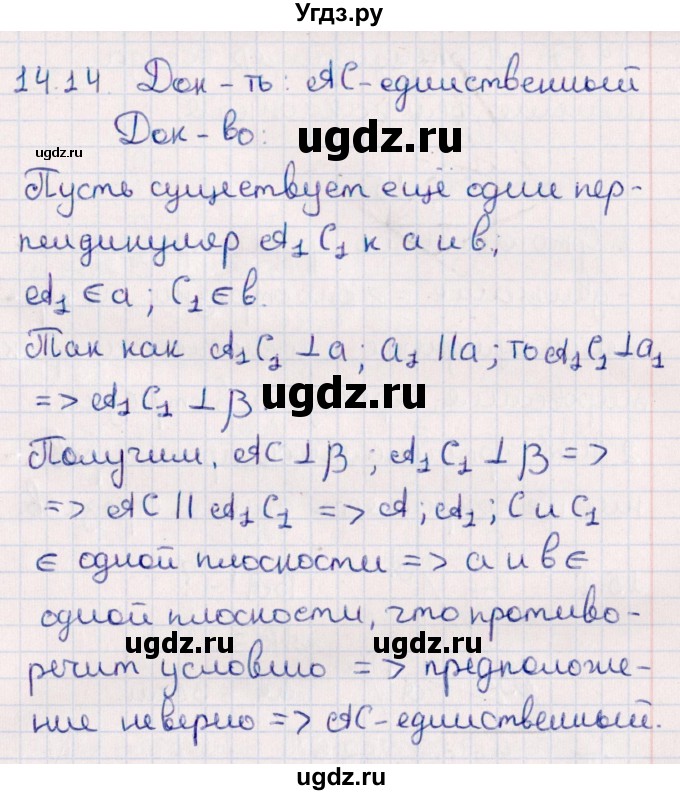 Угдз.ру
14.14. Док-ть: AC-единственный
Док-во:
ugdz.ru
ugdz.ru
Пусть существует ещё один пер-
пендикуляр A₁C₁ к a и b;
A₁ ∈ a; C₁ ∈ b.
Так как A₁C₁ ⊥ a; a₁ || a; то A₁C₁ ⊥ a₁
=> A₁C₁ ⊥ β
ugdz.ru
ugdz.ru
Получим, AC ⊥ β; A₁C₁ ⊥ β =>
=> AC || A₁C₁ => A; A₁; C и C₁
∈ одной плоскости => a и b ∈
одной плоскости, что противо-
ugdz.ru
ugdz.ru
речит условию => предположе-
ние неверно => AC-единственный.
ugdz.ru